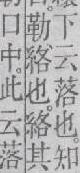 下云落也。知
勒絡也。絡其
口中。此云落